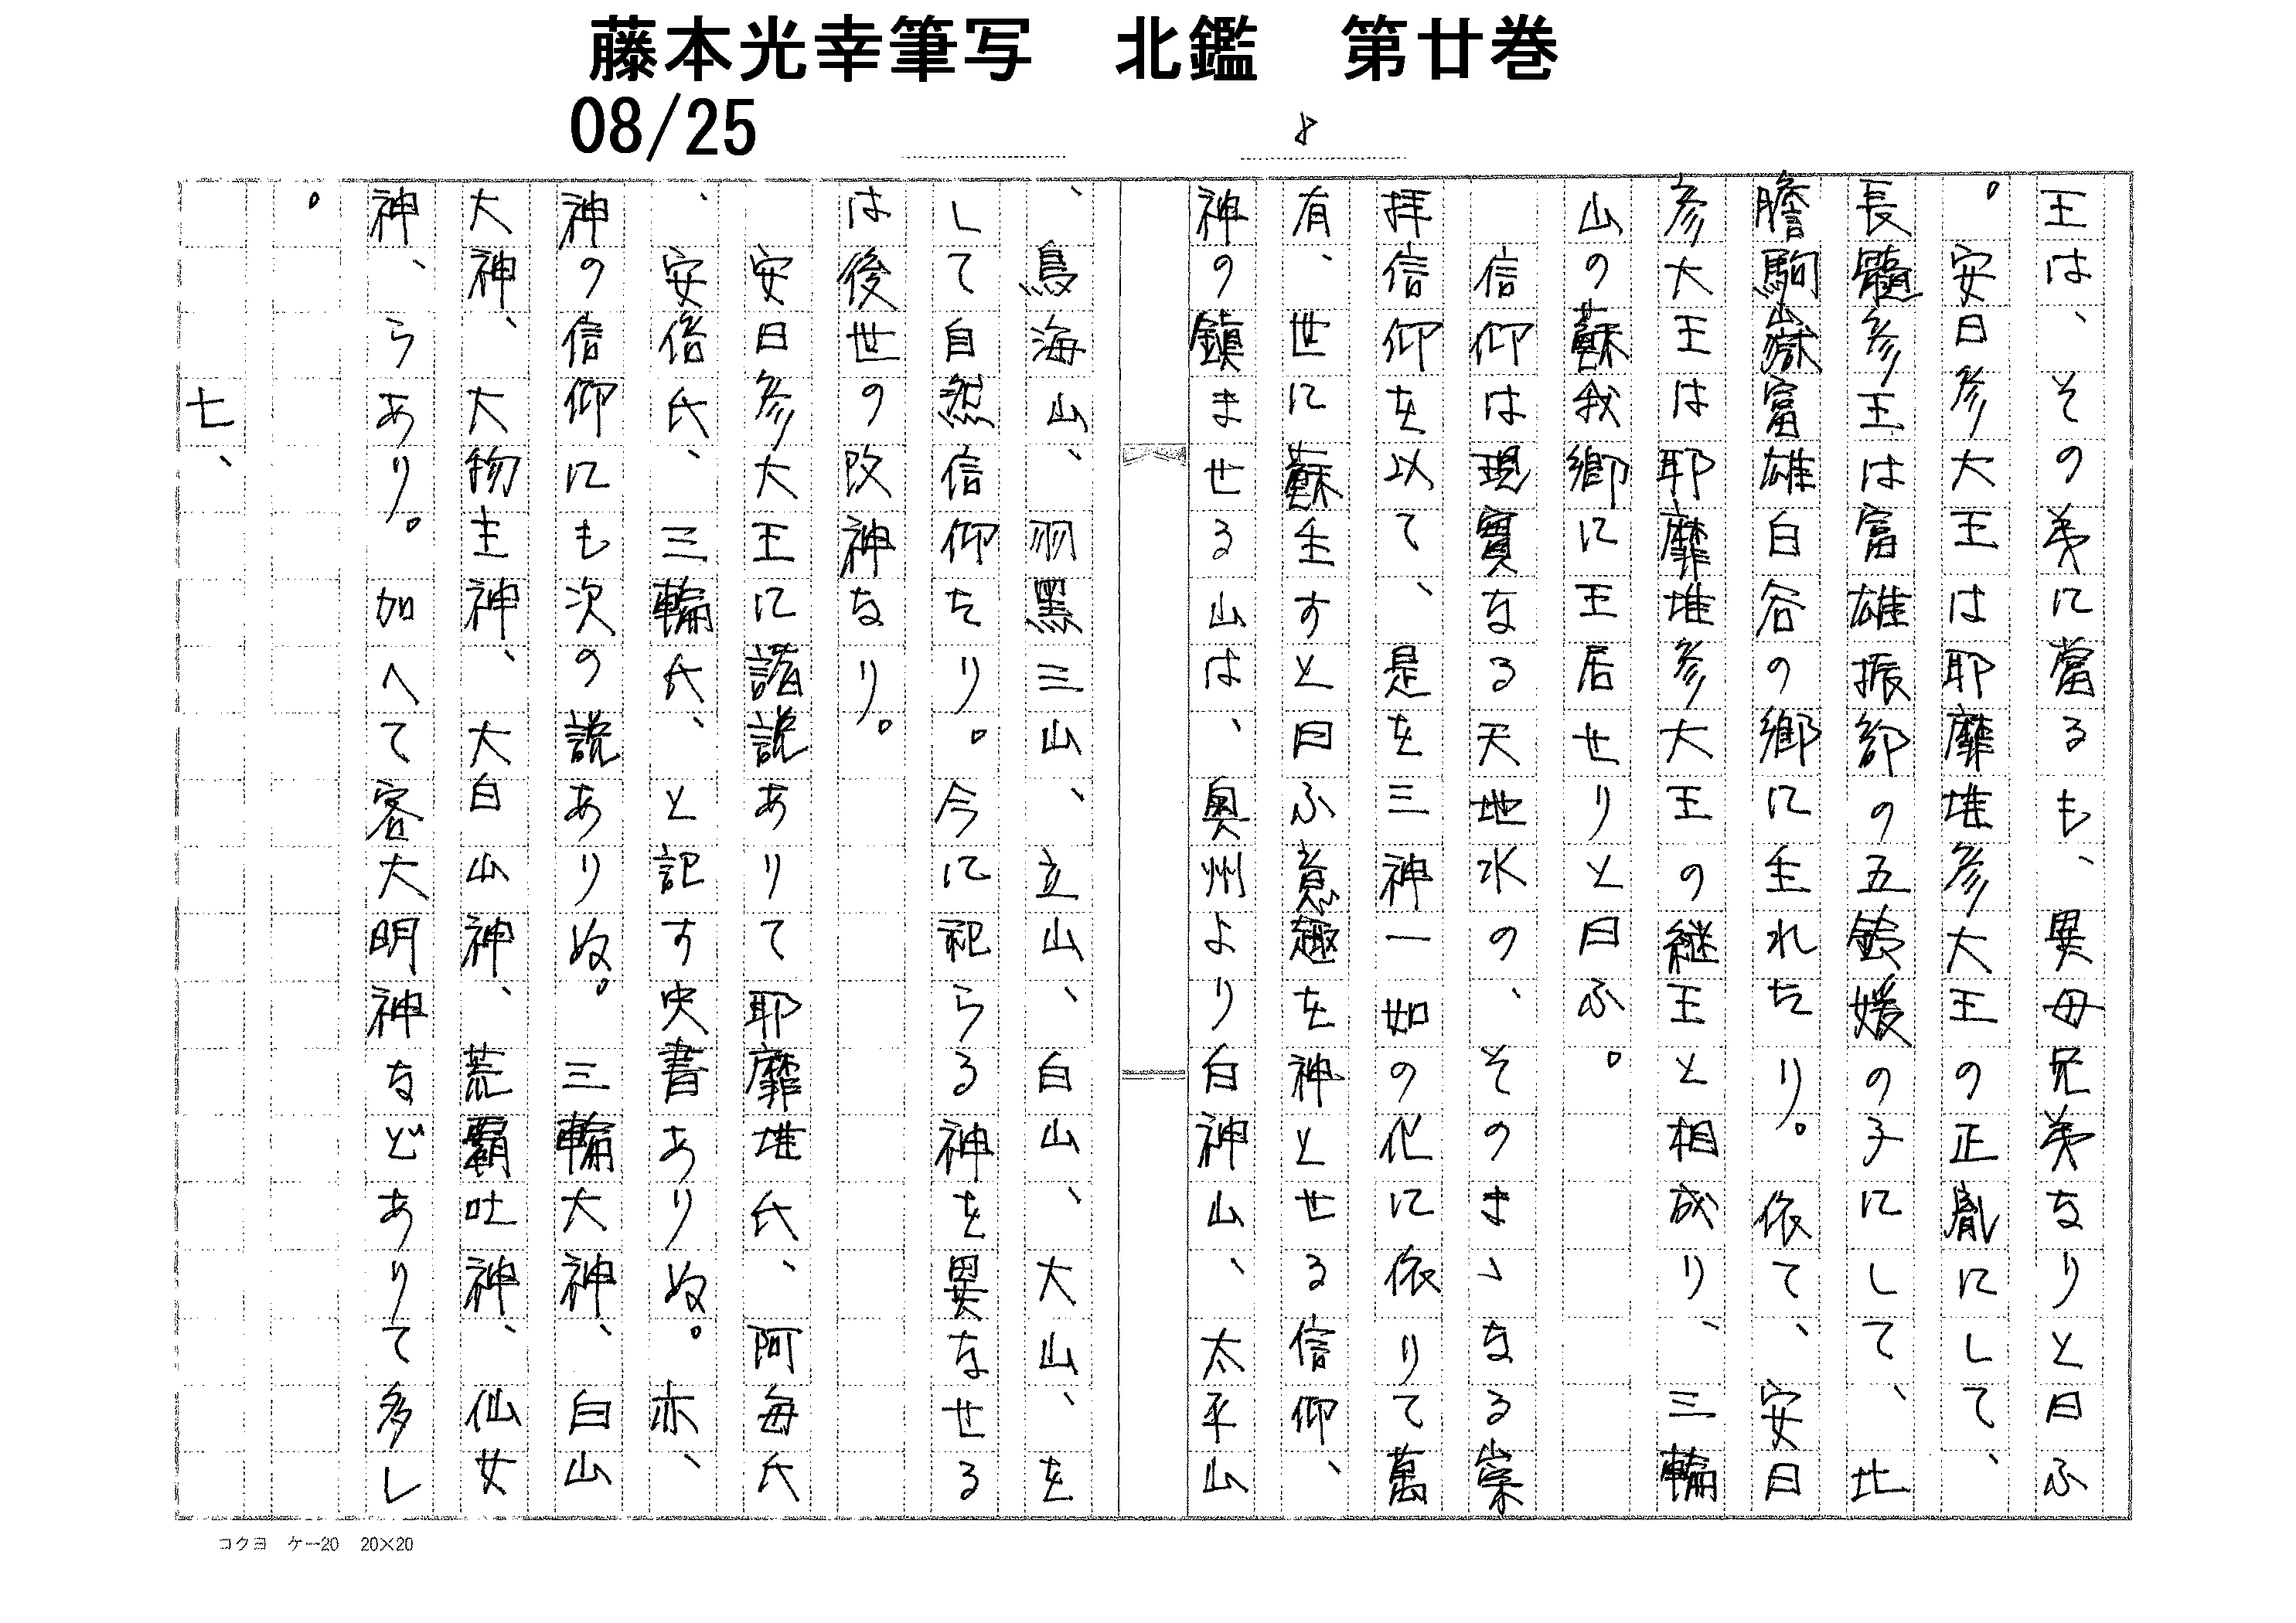 藤本光幸筆写　北鑑　第廿巻
08/25
8
王は、その弟に當るも、異母兄弟なりと曰ふ
。安日彦大王は耶靡堆彦大王の正胤にして、
長髓彦王は富雄振部の五鈴媛の子にして、地
膽駒嶽富雄白谷の郷に生れたり。依て、安日
彦大王は耶靡堆彦大王の継王と相成り、三輪
山の蘇我郷に王居せりと曰ふ。
信仰は現實なる天地水の、そのまゝなる崇
拝信仰を以て、是を三神一如の化に依りて萬
有、世に蘇生すと曰ふ意趣を神とせる信仰、
神の鎮ませる山は、奥州より白神山、太平山
、鳥海山、羽黒三山、立山、白山、大山、を
して自然信仰たり。今に祀らる神を異なせる
は後世の改神なり。
安日彦大王に諸説ありて耶靡堆氏、阿毎氏
、安倍氏、三輪氏、と記す史書ありぬ。亦、
神の信仰にも次の説ありぬ。三輪大神、白山
大神、大物主神、大白山神、荒覇吐神、仙女
神、らあり。加へて客大明神などありて多し
。
七、
コクヨ　ケー20　20×20